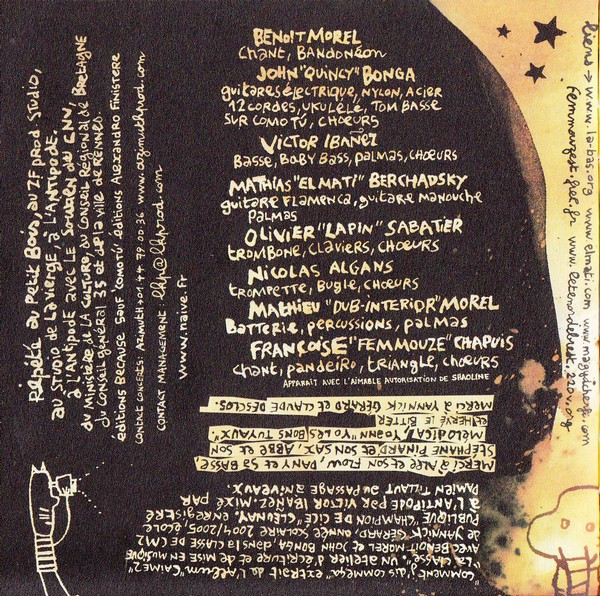 BENOÎT MOREL
CHANT, BANDONÉON
JOHN "QUINCY" BONGA
guitares électrique, NYLON, ACIER
12 CORDES, UKULÉLÉ, TOM BASSE
SUR COMO TÚ, CHOEURS
VICTOR IBAÑEZ
BASSE, BABY BASS, PALMAS, CHOEURS
MATHIAS "EL MATI" BERCHADSKY
guitare FLAMENCA, guitare MANOUCHE
PALMAS
OLIVIER "LAPIN" SABATIER
TROMBONE, CLAVIERS, CHOEURS
NICOLAS ALGANS
TROMPETTE, BUGLE, CHOEURS
MATHIEU "DUB-INTERIOR" MOREL
BATTERIE, PERCUSSIONS, PALMAS
FRANÇOISE "FEMMOUZE" CHAPUIS
CHANT, PANDEIRO, TRIANGLE, CHOEURS
APPARAÎT AVEC L'AIMABLE AUTORISATION DE SHAOLINE
Répété au Petit Bois, au ZF prod Studio,
au Studio de La Vierge, à l'ANTIPODE,
à l'Antipode avec le soutien du CNV,
du Ministère de la CULTURE, du Conseil Régional de Bretagne
du conseil général 35 et de la ville de Rennes.
éditions BECAUSE sauf COMOTÚ éditions ALEXANDRO FINISTERE
CONTACT CONCERTS: AZIMUTH +01 44 79 00 36 www.azimuthprod.com
CONTACT MANAGEMENT lhp@lhprod.com
www.naive.fr
liens > www.la-bas.org www.elmati.com
femmouzest.free.fr
MERCI à Alee et son FLOW, DANY et sa BASSE
STÉPHANE PINARD ET SON SAX, ABBE et SON
MELODICA, YOANN "YO LES BONS TUYAUX"
et HERVÉ LE BITTER
MERCI à YANNICK GÉRARD et CLAUDE DESCLOS.
"COMMENT ÇA COMMENCE" extrait de L'album "CM2
"LA CLASSE". UN atelier d'écriture et de mise en musique
AVEC BENOÎT MOREL et JOHN BONGA, dans la classe de CM2
de YANNICK GÉRARD, année SCOLAIRE 2004/2005, école
PUBLIQUE "CHAMPION DE CICÉ" CLEUNAY. enregistré
à L'ANTIPODE PAR VICTOR IBAÑEZ. MIXÉ PAR
DAMIEN TILLAUT AU PASSAGE À NIVEAUX.